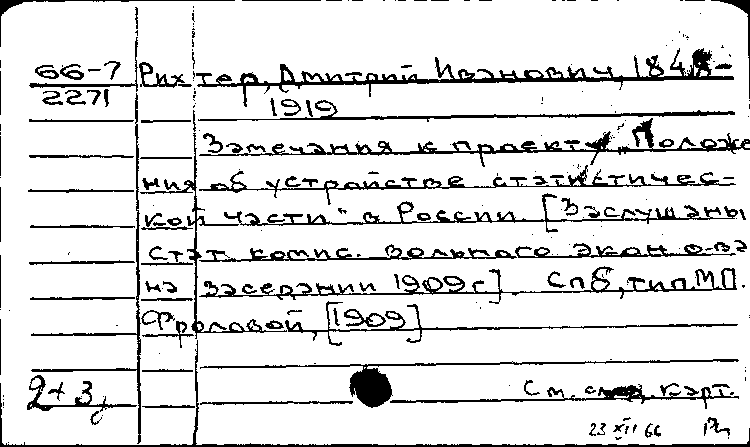 66-7 Рихтер, Дмитрий Иванович, 1848-
2271 1919
Замечания к проекту „Положе
ния об устройстве статистичес-
кой части" в России. [Заслушаны
стат. комис. Вольного экон. о-ва
на заседании 1909 г.] Спб, тип. М.П.
Фроловой, [1909]
2+3, См. след. карт.
23 XII 66